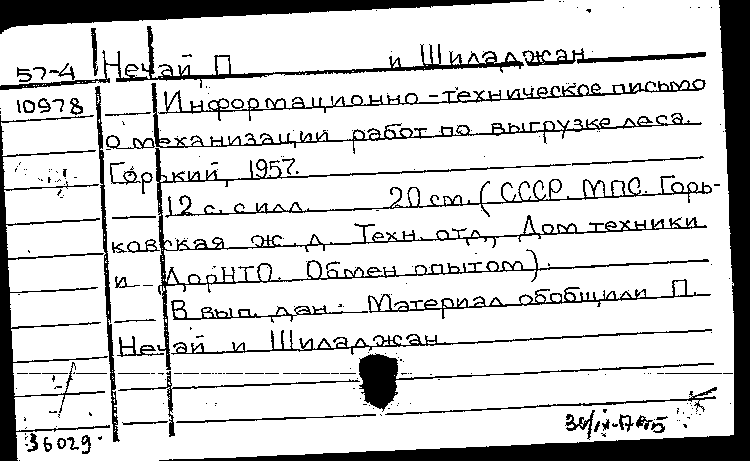 57-4 Нечай, П и Шиладжан
10978 Информационно-техническое письмо
о механизации работ по выгрузке леса.
Горький, 1957.
12 с. с илл. 20 см. (СССР. МПС. Горь-
ковская ж. д. Техн. отд., Дом техники
и ДорНТО. Обмен опытом).
В вып. дан: Материал обобщили П.
Нечай и Шиладжан
36029